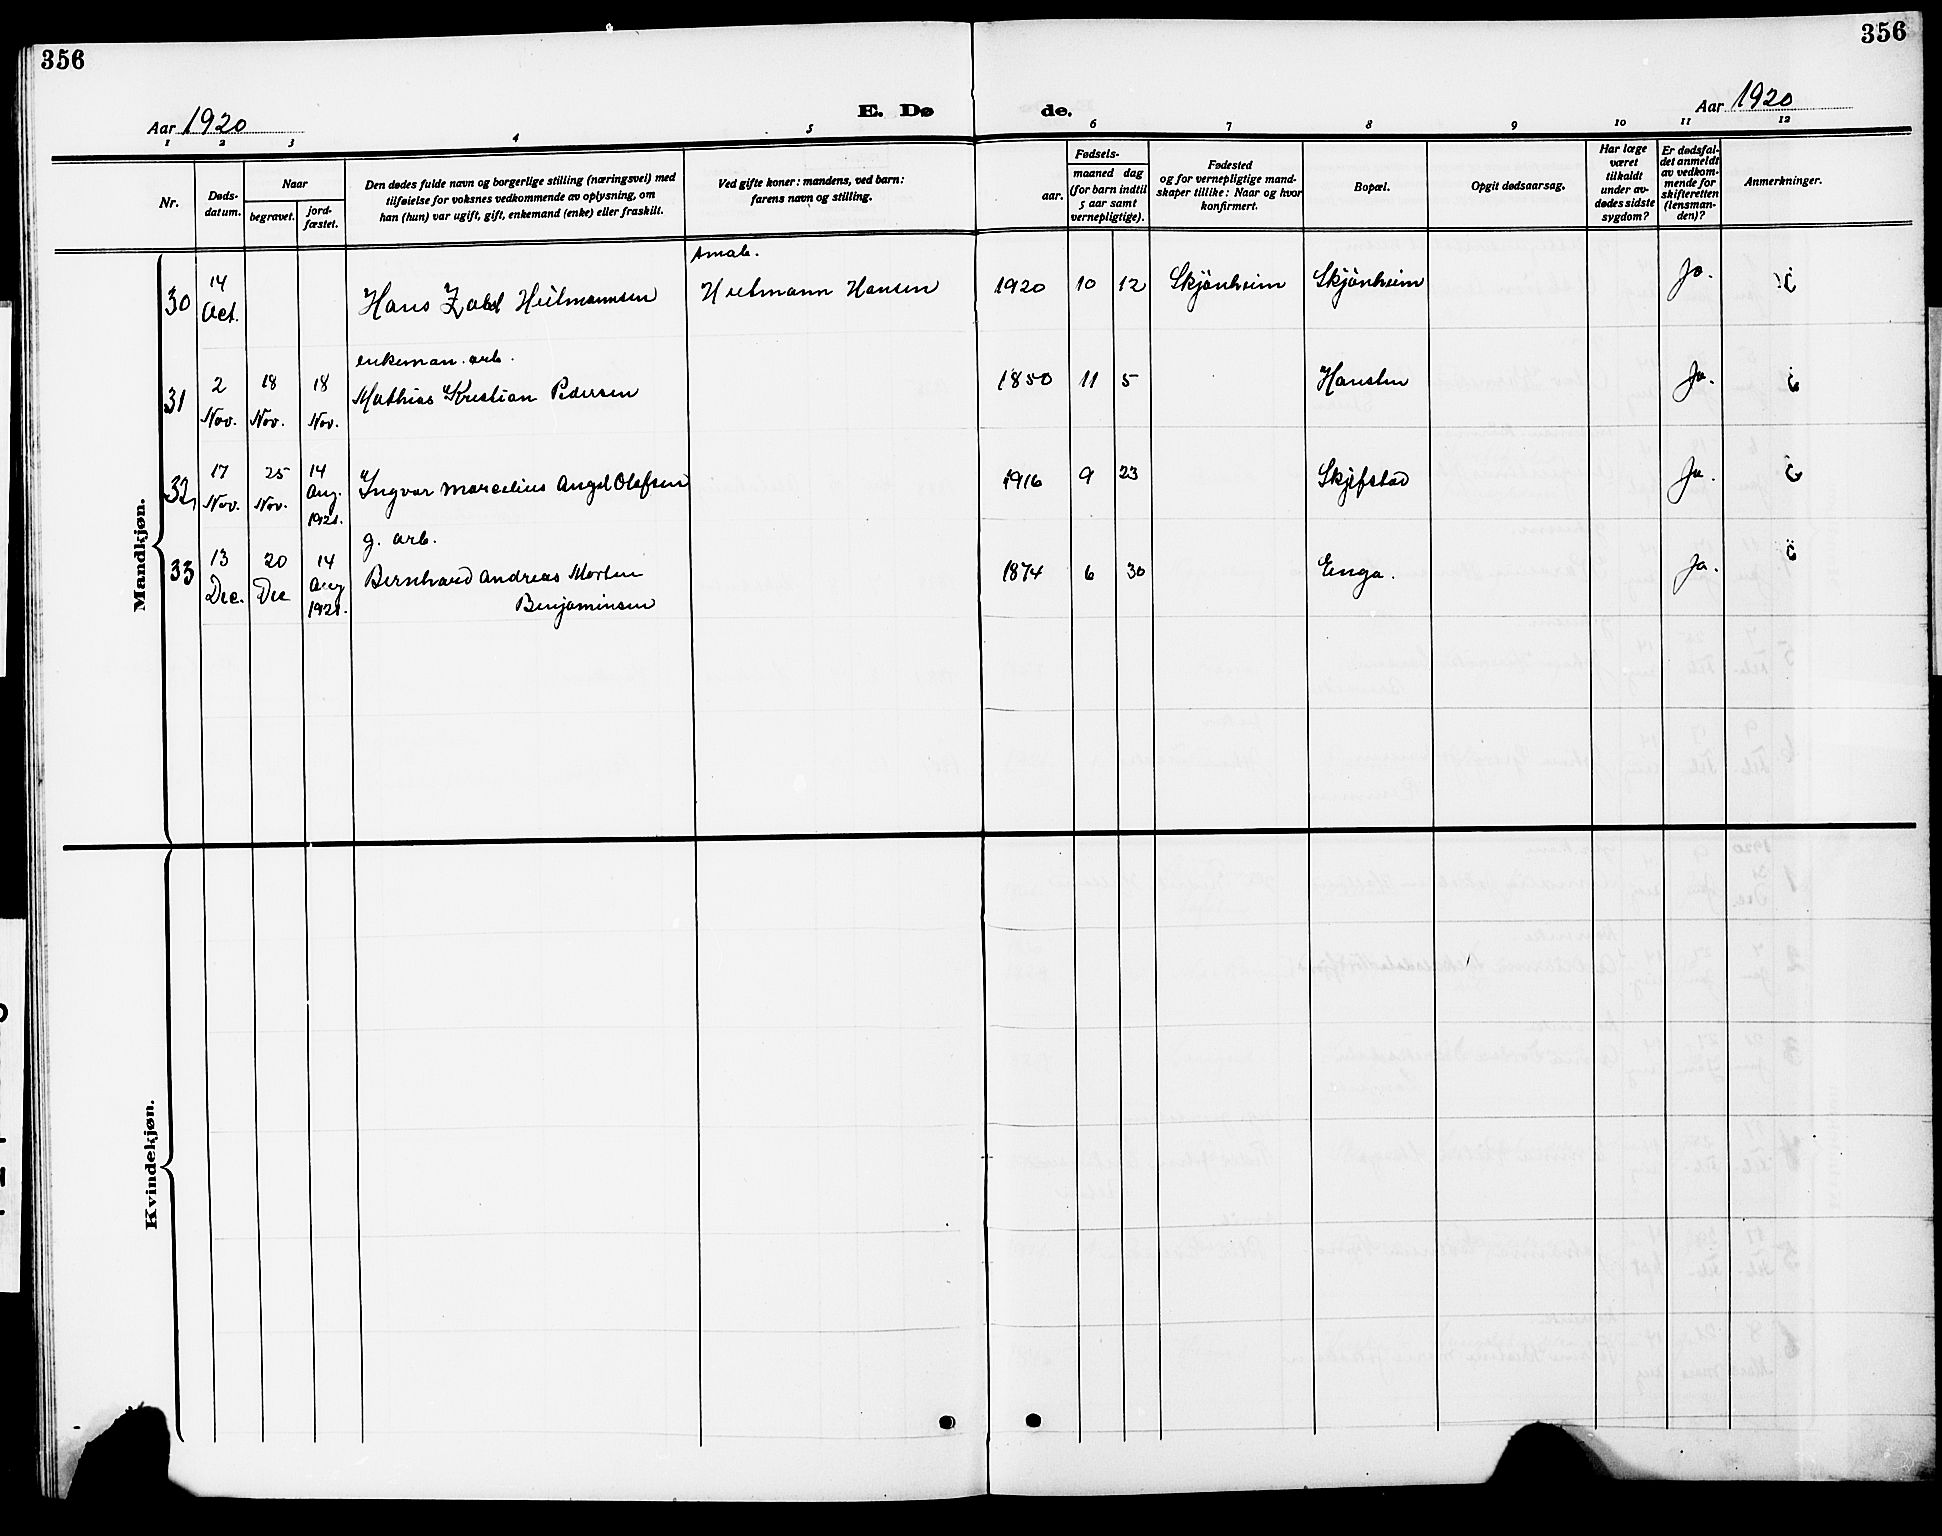 356
356
Aar 1920
E. Dø
de.
Aar 1920
1
2
3
4
5
6
7
8
9
10
11
12
Nr.
Døds-
datum.
Naar
begravet.
jord-
fæstet.
Den dødes fulde navn og borgerlige stilling (næringsvei) med
tilføielse for voksnes vedkommende av oplysning, om
han (hun) var ugift, gift, enkemand (enke) eller fraskilt.
Ved gifte koner: mandens, ved barn:
farens navn og stilling.
Fødsels-
aar.
maaned
dag
(for barn indtil
5 aar samt
vernepligtige).
Fødested
og for vernepligtige mand-
skaper tillike: Naar og hvor
konfirmert.
Bopæl.
Opgit dødsaarsag.
Har læge
været
tilkaldt
under av-
dødes sidste
sygdom?
Er dødsfal-
det anmeldt
av vedkom-
mende for
skifteretten
(lensman-
den)?
Anmerkninger.
Mandkjøn.
30
14
Oct.
Hans Heitmannsen
Smab.
Heitmann Hansen
1920 10 12 Skjönheim Skjönheim Ja.
31
2
Nov.
18
Nov.
18
Nov.
enkeman. arb.
Mathias Kristian Pedersen
1850 11 5 Ja.
32
17
Nov.
25
Nov.
14
Aug.
1921.
Ingvar Marcelius Angel Olafsen
1916 9 23 Skjefstad Ja.
33
13
Dec.
20
Dec
14
Aug
1921.
g. arb.
Bernhard Andreas Morten
Benjaminsen
1874 6 30 Enga. Ja.
Kvindekjøn.